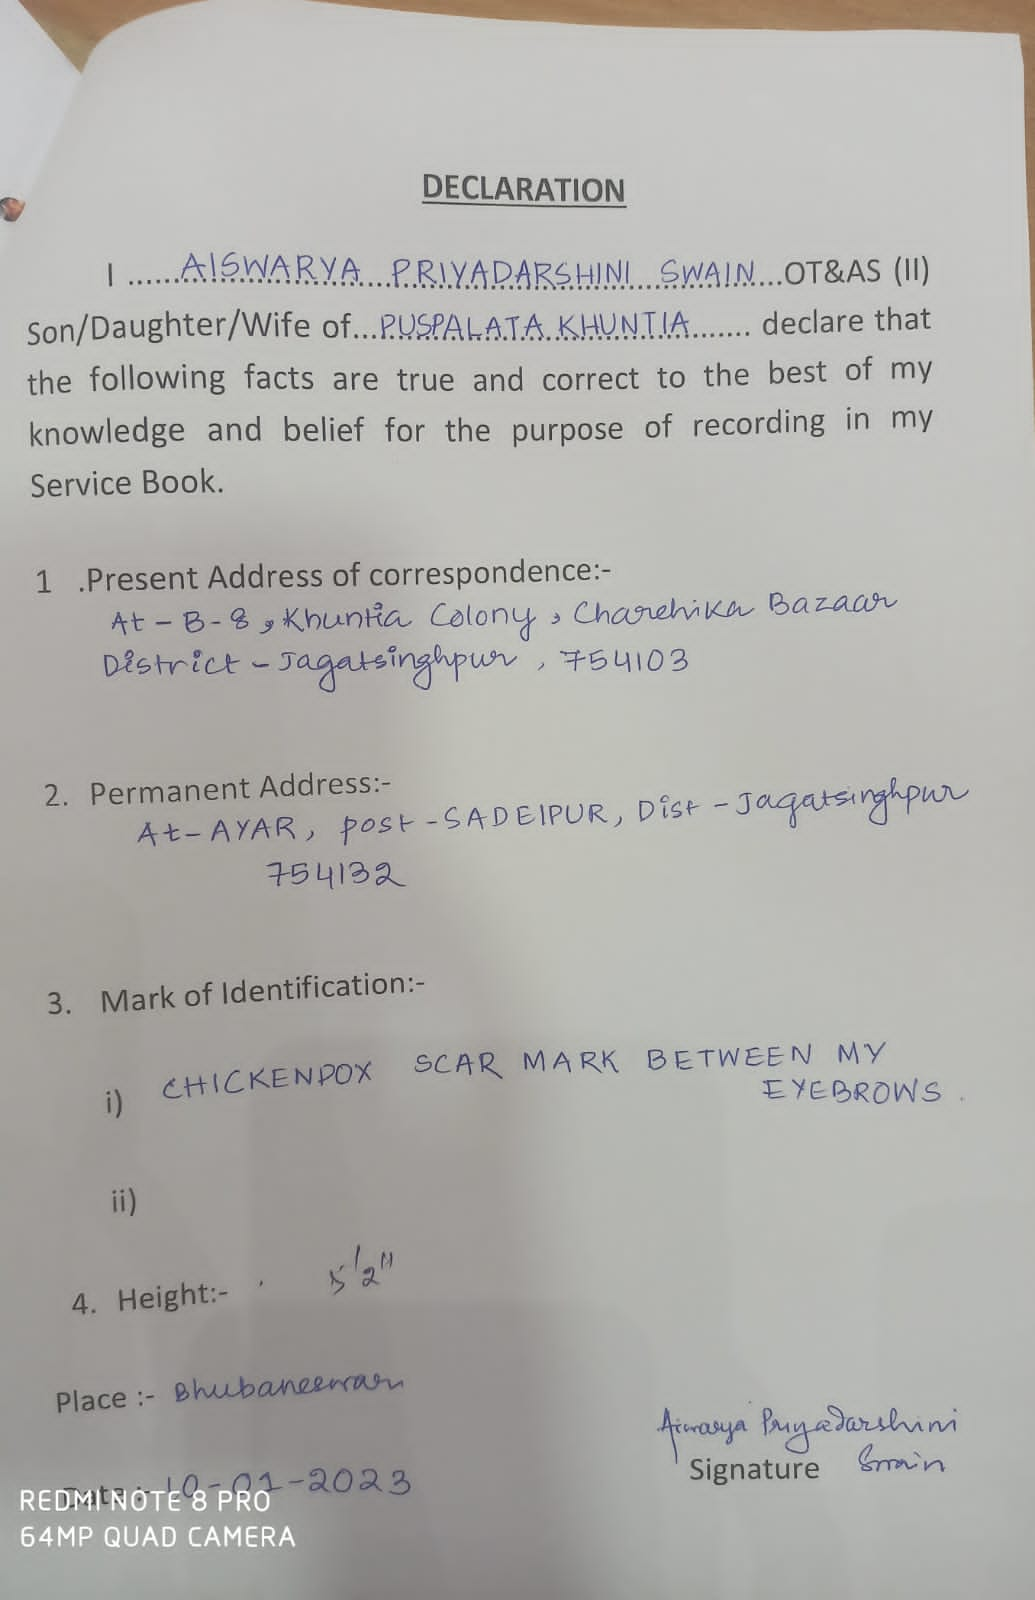 DECLARATION
I ......AISWARYA...PRIYADARSHINI...SWAIN...OT&AS (II)
Son/Daughter/Wife of...PUSPALATA KHUNTIA....... declare that
the following facts are true and correct to the best of my
knowledge and belief for the purpose of recording in my
Service Book.
1 .Present Address of correspondence:-
At - B-8, Khuntia Colony, Charchika Bazaar
District - Jagatsinghpur, 754103
2. Permanent Address:-
At-AYAR, post-SADEIPUR, Dist-Jagatsinghpur
754132
3. Mark of Identification:-
i) CHICKENPOX SCAR MARK BETWEEN MY
EYEBROWS.
ii)
4. Height:- 5'2"
Place :- Bhubaneswar
Aiswarya Priyadarshini
Signature Swain
Date :- 10-01-2023
REDMI NOTE 8 PRO
64MP QUAD CAMERA